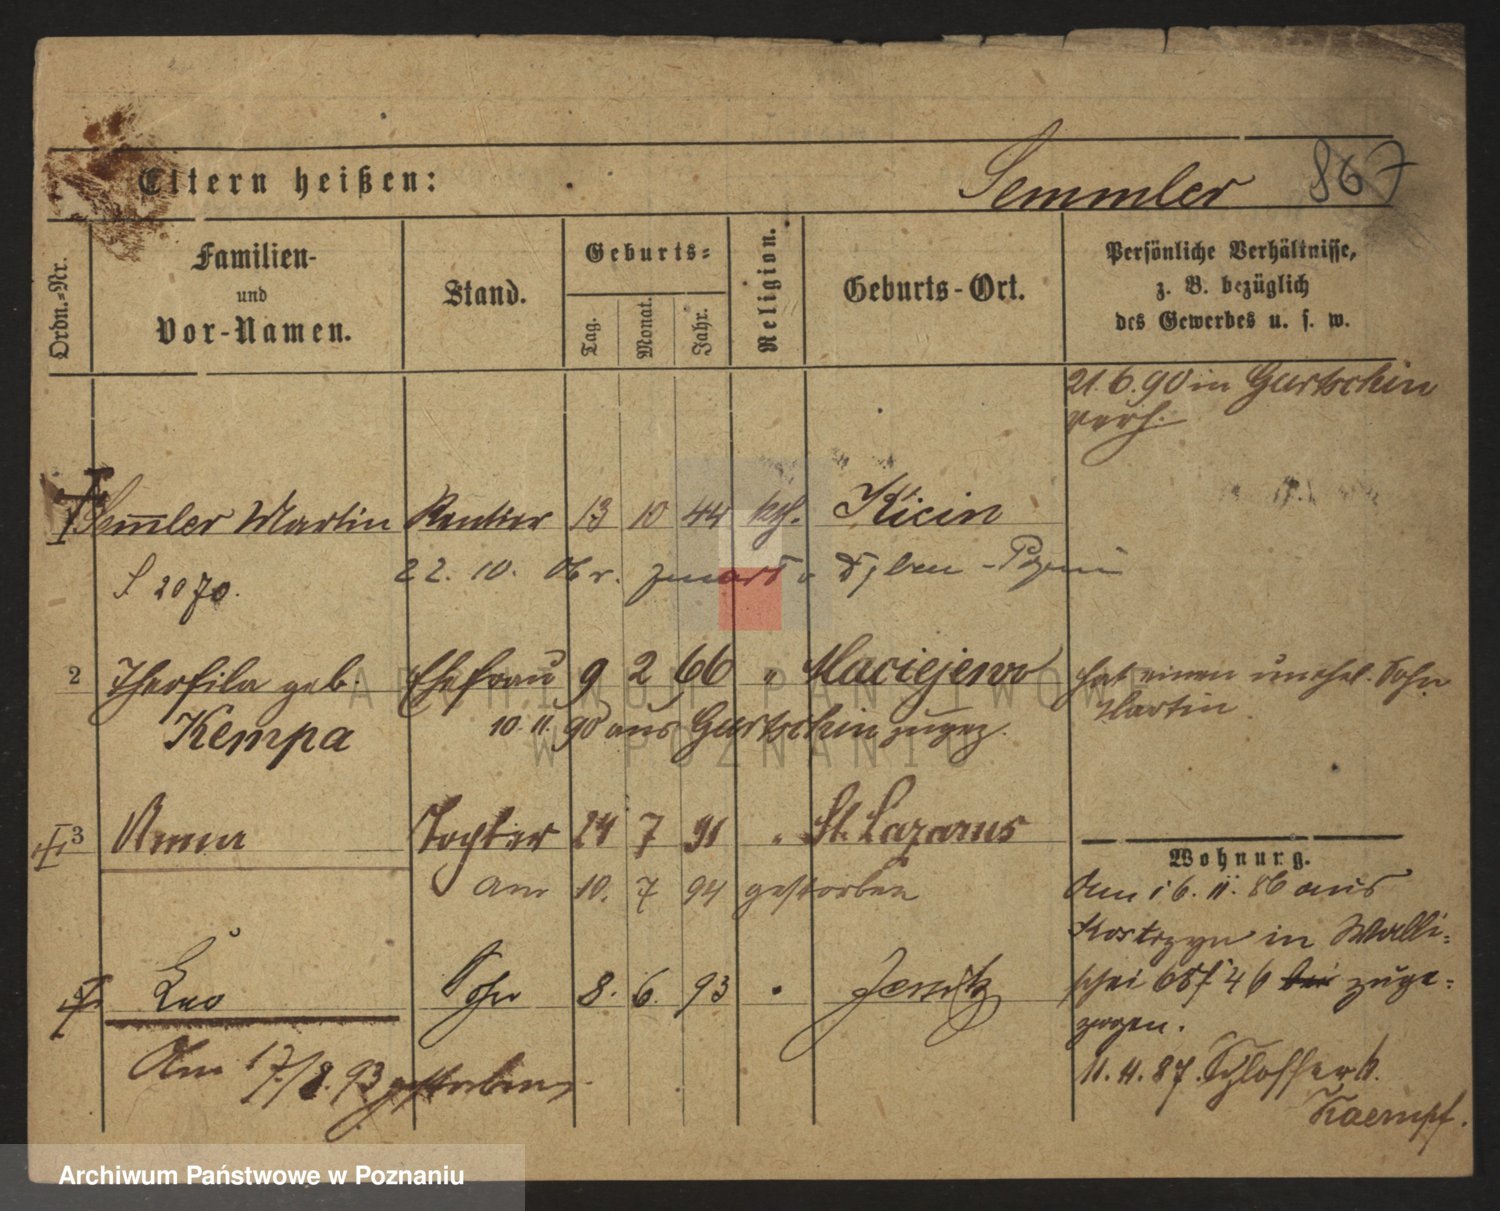 Eltern heißen: Semmler 867
Ordn.-Nr.
Familien-
und
Vor-Namen.
Stand.
Geburts-
Tag.
Monat.
Jahr.
Religion.
Geburts-Ort.
Persönliche Verhältnisse,
z. B. bezüglich
des Gewerbes u. s. w.
21.6.90 in Gurtschin
verh.
Sem̅ler Martin Rentier 13 10 44 kth. Kicin
S 2070.
22. 10.
2 Theofila geb. Ehefrau 9 2 66 " Maciejewo hat einen unehel. Sohn
Kempa 10. 11. 90 aus Gurtschin zugez. Martin
3 Anna Tochter 24 7 91 " St. Lazarus
am 10. 7 94 gestorben
Leo Sohn 8. 6. 93 " Jersitz
Am 17./8. 93 gestorben
Wohnung.
Am 16. 11. 86 aus
Kostrzyn in Walli-
schei 65/46 bei zuge-
zogen.
11. 4. 87. Schlosser b.
Kaempf.
ARCHIWUM PAŃSTWOWE
W POZNANIU
Archiwum Państwowe w Poznaniu